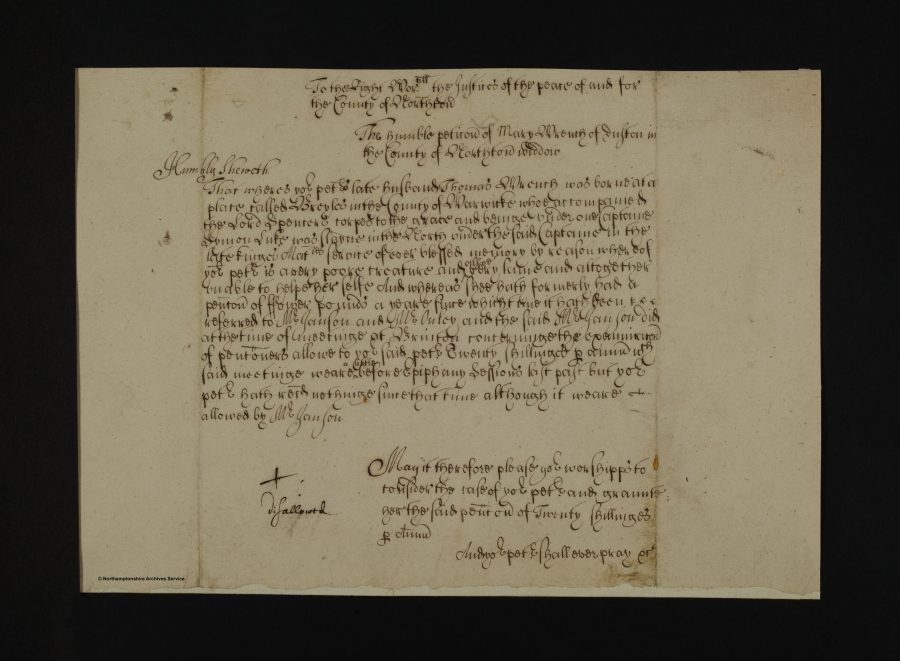 To the Right Wor:ll the Justices of the peace of and for
the County of Northton
The humble peticon of Mary Wrench of Duston in
the County of Northton widdow
Humbly Sheweth
That wheras yor petrs late husband Thomas Wrench was borne at a
place called Breyles in the County of Warwicke whoe accompaned
the Lord Spencers corpes to the grave and beinge under one Captaine
Symon Luke was slayne in the North under the said Captaine in the
late kinges Maties service of ever blessed memory by reason whereof
yor petr is a very poore creature and very lame and altogether
unable to helpe her selfe And whereas shee hath formerly had a
pencon of ffower pounds a yeare since which time it hath been
referred to Mr Janson and Mr Onley and the said Mr Janson did
at the time of meetinge at Brinton concerninge the examinacon
of pencioners allowe to yor said petr Twenty shillinges p annu wch
said meetinge weare before Epiphany Sessions last past but yor
petr hath recd nothinge since that time although it weare
allowed by Mr Janson
May it therefore please yor worshipps to
consider the case of yor petr and graunte
her the said pencon of Twenty shillinges
p annu
And yor petr shall ever pray &c
disallowed
© Northamptonshire Archives Service